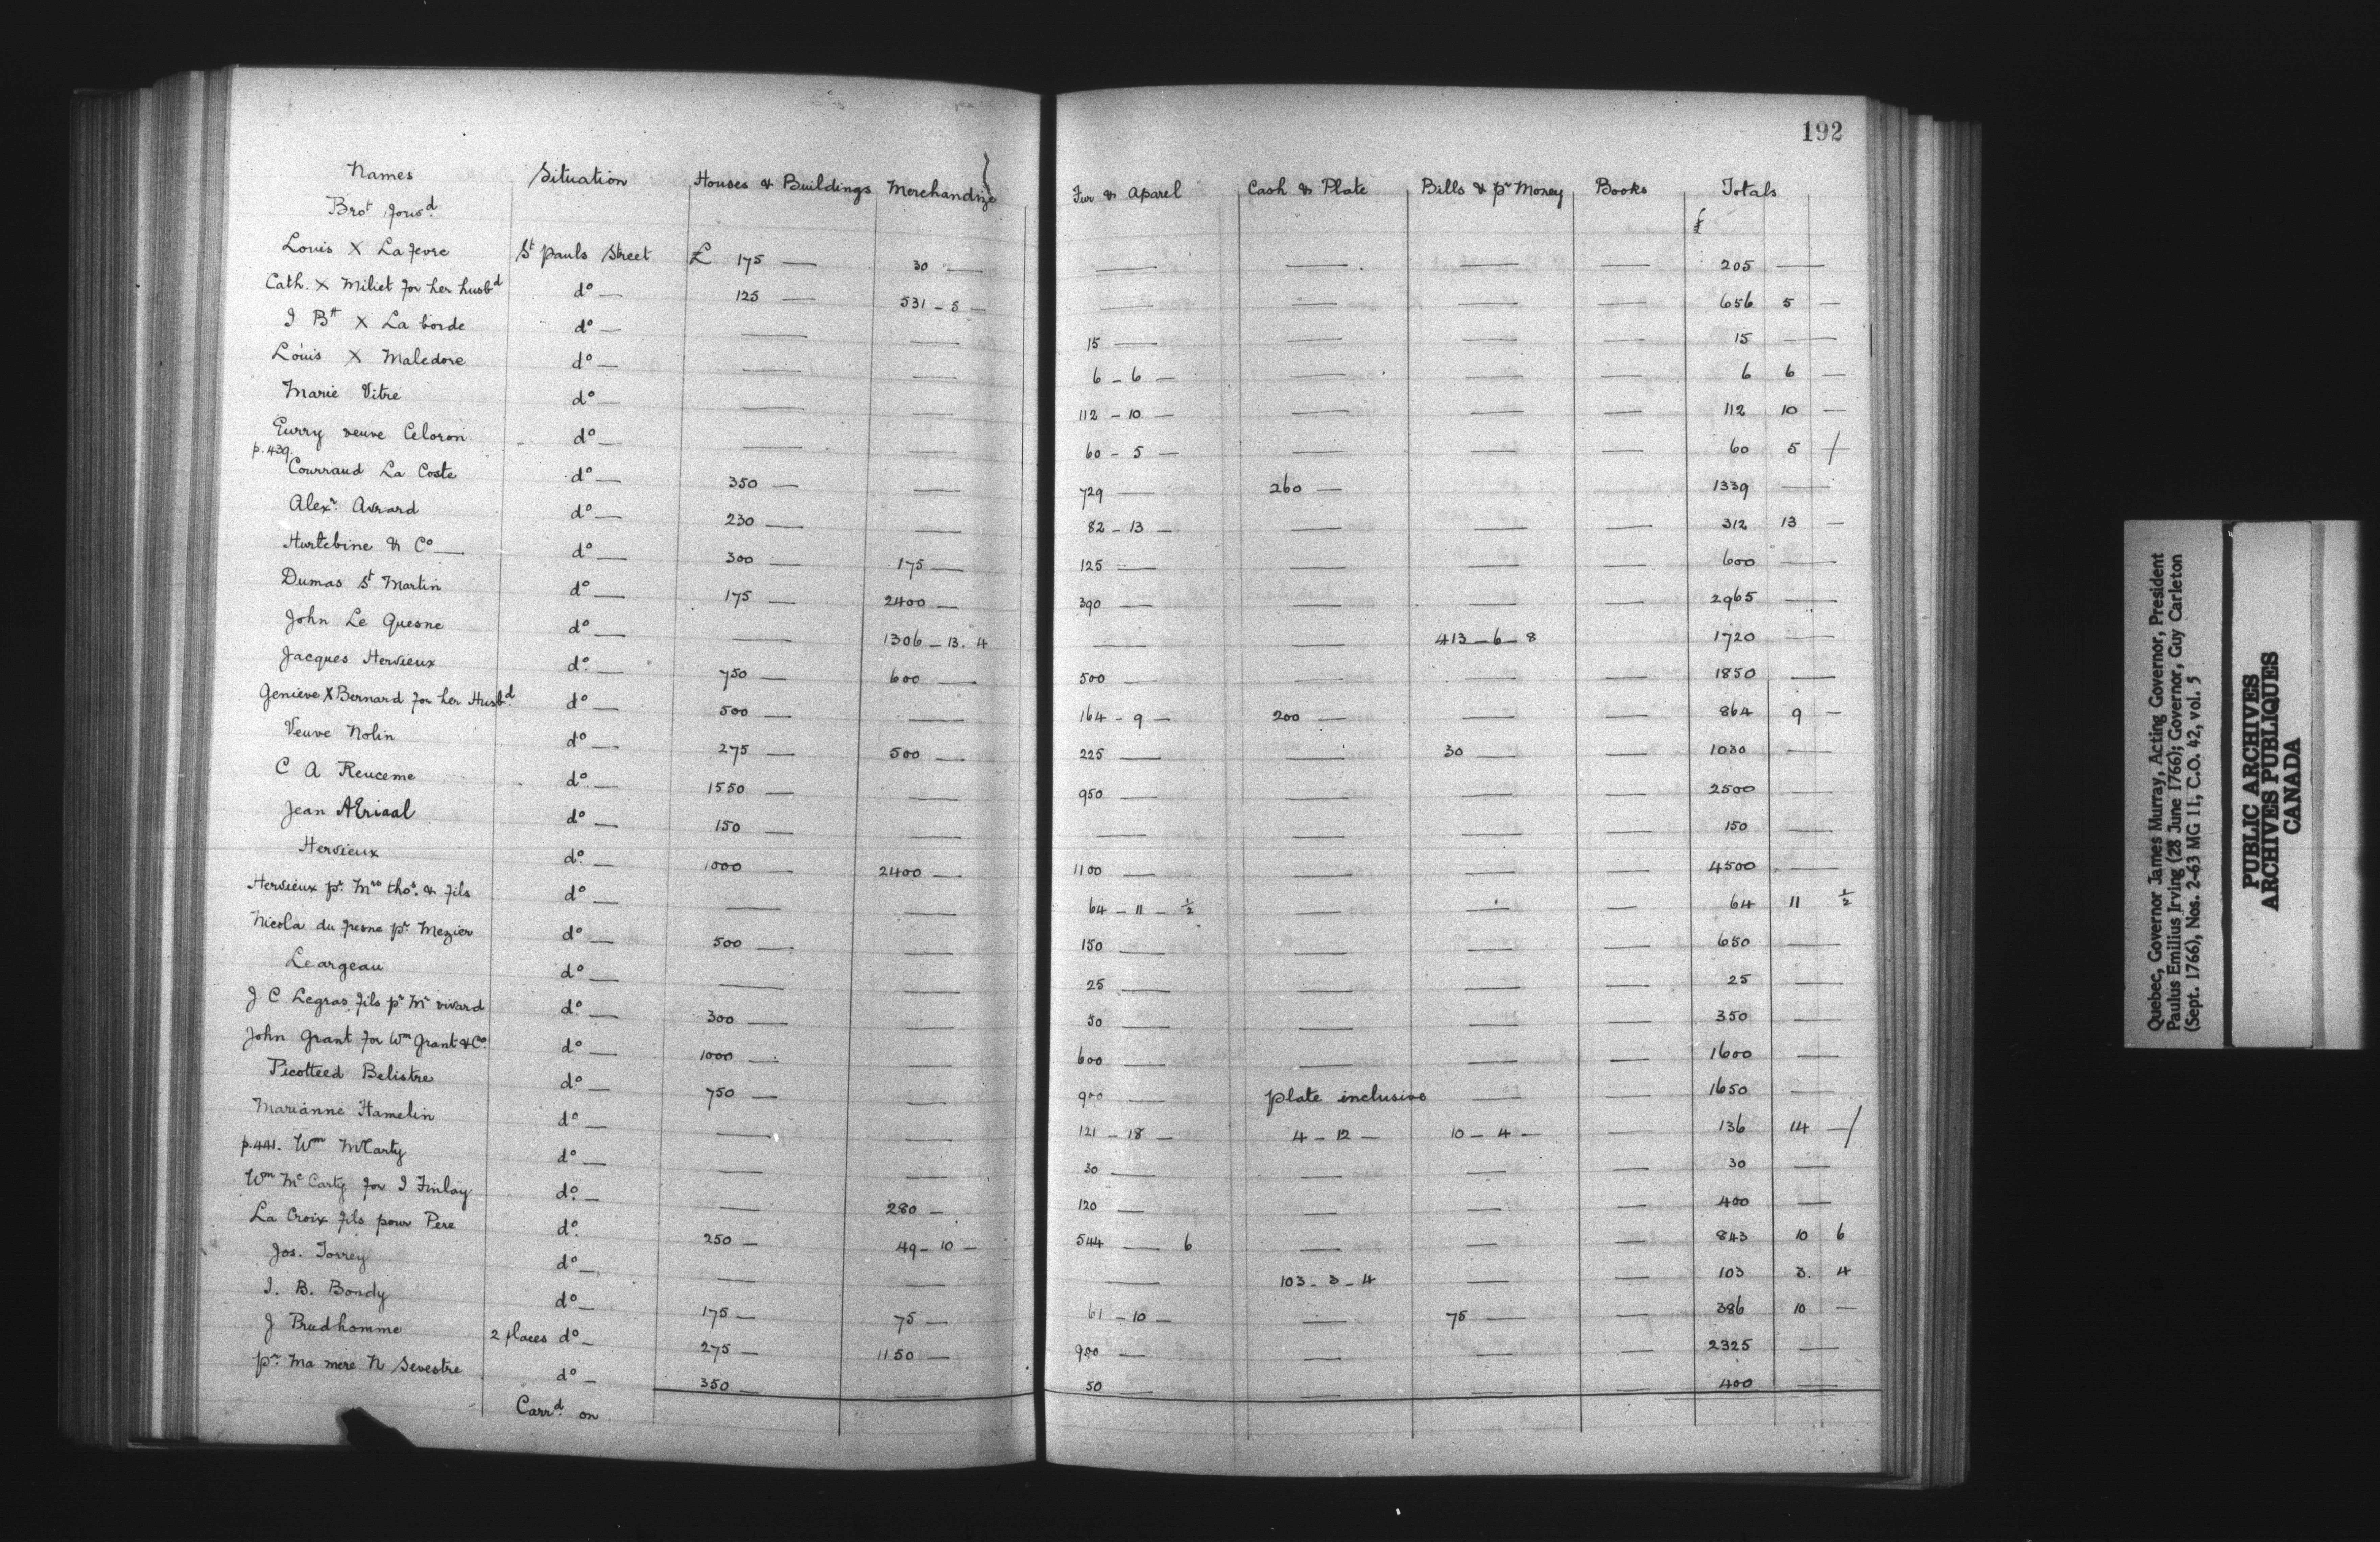 192
Names Situation Houses & Buildings Merchandize Fur & Aparel Cash & Plate Bills & pr Money Books Totals
Brot Forwd. £
Louis X Lafevre St Pauls Street £ 175 — 30 — — — — — 205 —
Cath. X Miliet for her husbd do — 125 — 531 - 5 — — — — — 656 5 —
J Btt X La borde do — — — 15 — — — — 15 —
Louis X Maledore do — — — 6 - 6 — — — — 6 6 —
Marie Vitre do — — — 112 - 10 — — — — 112 10 —
Eurry veuve Celoron do — — — 60 - 5 — — — — 60 5 /
p. 439.
Courraud La Coste do — 350 — — 729 — 260 — — — 1339 —
Alexr. Avrard do — 230 — — 82 - 13 — — — — 312 13 —
Hurtebine & Co — do — 300 — 175 — 125 — — — — 600 —
Dumas St Martin do — 175 — 2400 — 390 — — — — 2965 —
John Le Quesne do — — 1306 - 13. 4 — — 413 - 6 - 8 — 1720 —
Jacques Hervieux do. — 750 — 600 — 500 — — — — 1850 —
Genieve X Bernard for her Husbd. do — 500 — — 164 - 9 — 200 — — — 864 9 —
Veuve Nolin do — 275 — 500 — 225 — — 30 — — 1030 —
C A Reuceme do. — 1550 — — 950 — — — — 2500 —
Jean AEriaal do — 150 — — — — — — 150 —
Hervieux do. — 1000 2400 — 1100 — — — — 4500 —
Hervieux pr. Mrs thos. & fils do — — — 64 - 11 - ½ — — — 64 11 ½
Nicola du fresne pr. Mezier do — 500 — — 150 — — — — 650 —
Leargeau do — — — 25 — — — — 25 —
J C Legras fils pr Mr vivard do. — 300 — — 50 — — — — 350 —
John Grant for Wm Grant & Co. do — 1000 — — 600 — — — — 1600 —
Picotteed Belistre do — 750 — — 900 — plate inclusive — — 1650 —
Marianne Hamelin do — — — 121 - 18 — 4 - 12 — 10 - 4 — — 136 14 — /
p.441. Wm McCarty do — — — 30 — — — — 30 —
Wm Mc Carty for J Finlay do. — — 280 — 120 — — — — 400 —
La Croix fils pour Pere do. 250 — 49 - 10 — 544 — 6 — — — 843 10 6
Jos. Torrey do — — — — 103 - 3 - 4 — — 103 3. 4
J. B. Bondy do — 175 — 75 — 61 - 10 — — 75 — — 386 10 —
J Prudhomme 2 places do — 275 — 1150 — 900 — — — — 2325 —
pr. ma mere N Sevestre do — 350 — — 50 — — — — 400 —
Carrd. on
Quebec, Governor James Murray, Acting Governor, President
Paulus Emilius Irving (28 June 1766); Governor, Guy Carleton
(Sept. 1766), Nos. 2-63 MG 11, C.O. 42, vol. 5
PUBLIC ARCHIVES
ARCHIVES PUBLIQUES
CANADA